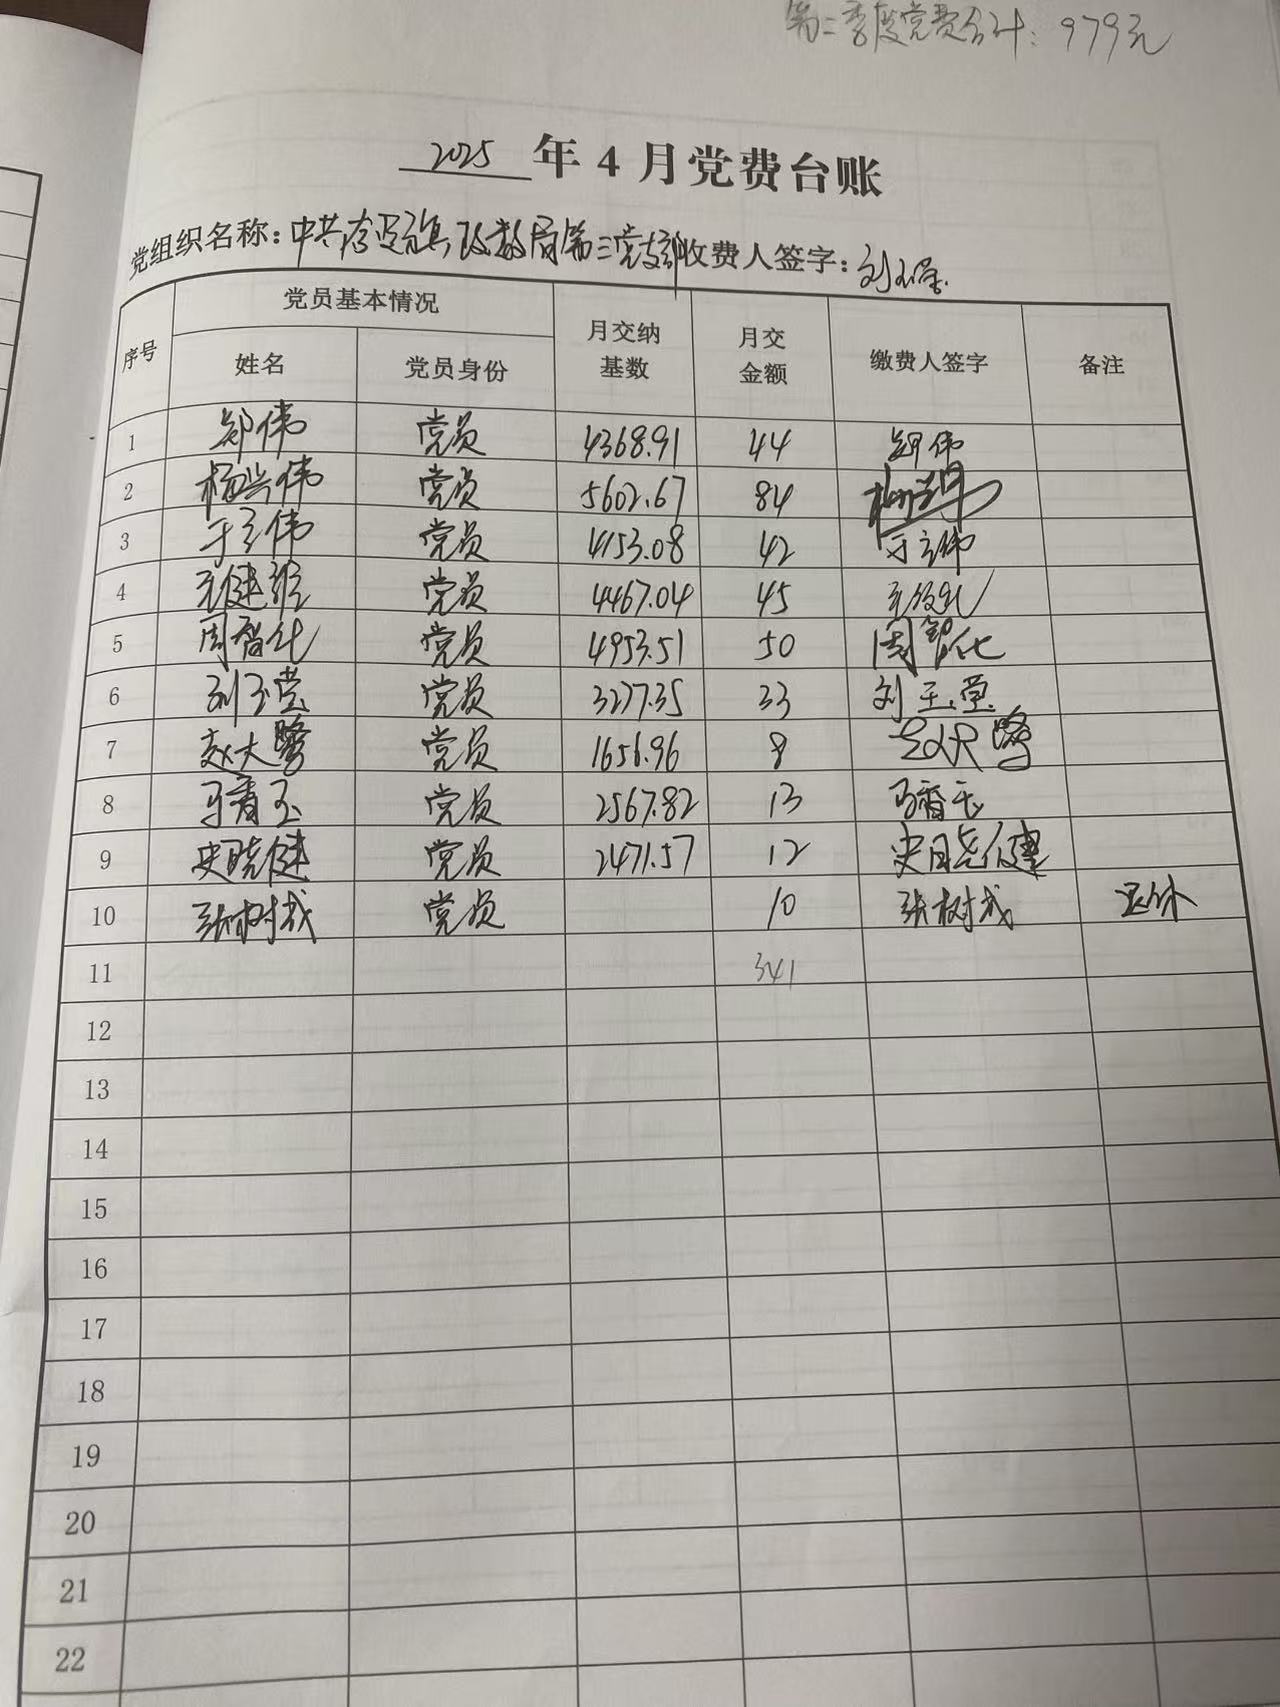 第二季度党费合计：979元
2025 年 4 月党费台账
党组织名称：中共 旗政数局第三党支部 收费人签字：刘玉堂
序号 党员基本情况 月交纳基数 月交金额 缴费人签字 备注
姓名 党员身份
1 郑伟 党员 4368.91 44 郑伟
2 杨兴伟 党员 5602.67 84
3 于立伟 党员 4153.08 42 于立伟
4 党员 4467.04 45
5 周智化 党员 4953.51 50 周智化
6 刘玉堂 党员 3277.35 33 刘玉堂
7 赵大鹏 党员 1656.96 8 赵大鹏
8 马青玉 党员 2567.82 13 马青玉
9 史晓健 党员 2471.57 12 史晓健
10 张树成 党员 10 张树成 退休
11 341
12
13
14
15
16
17
18
19
20
21
22